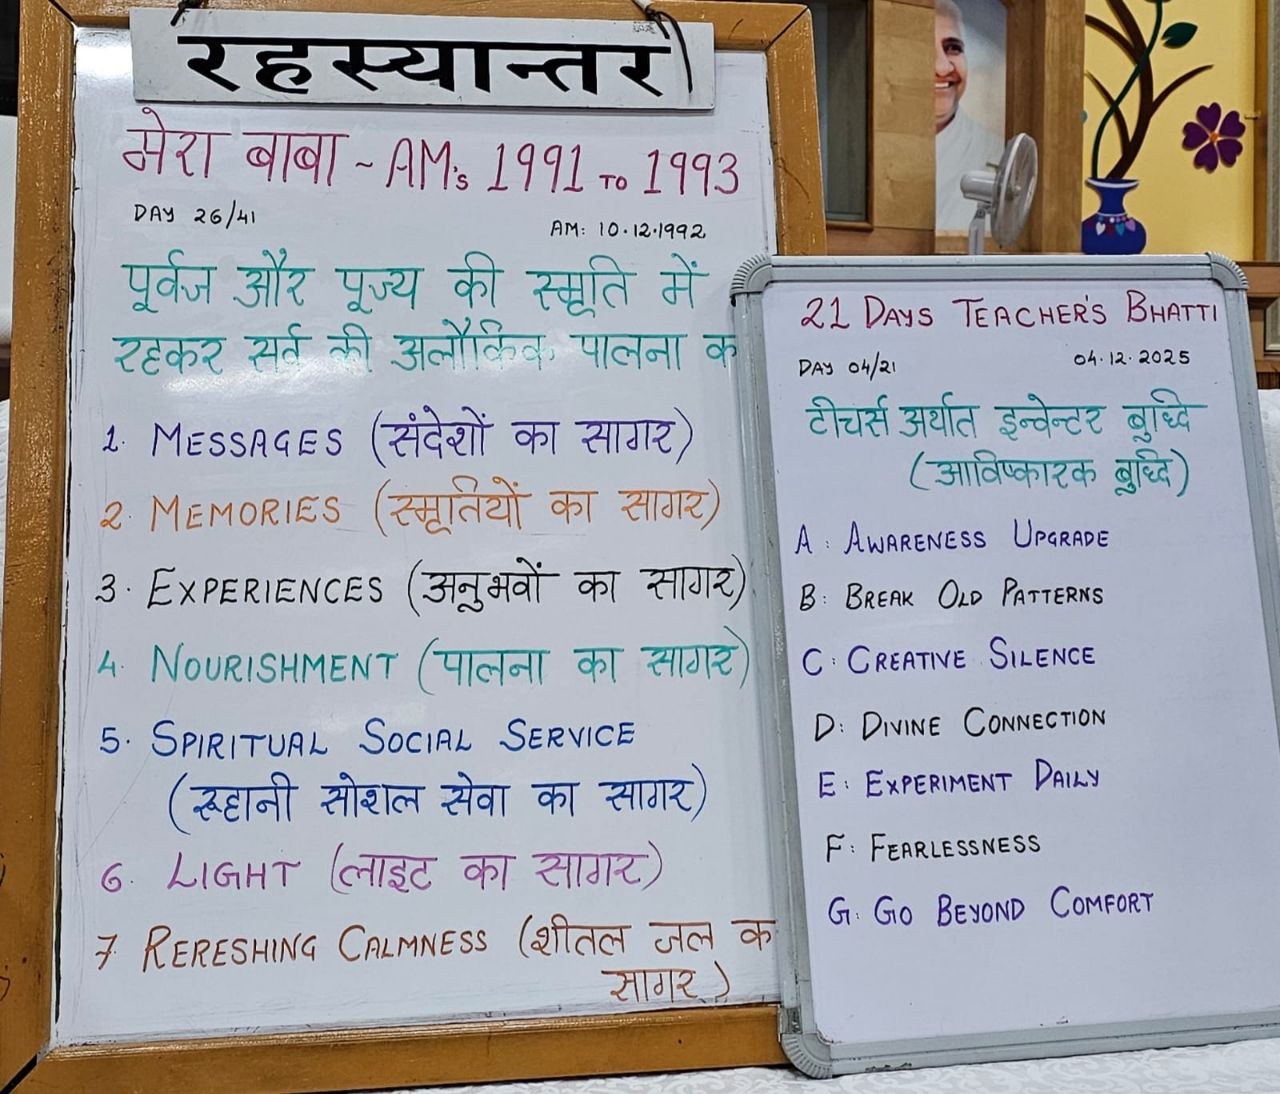 रहस्यान्तर
मेरा बाबा ~ AM's 1991 TO 1993
DAY 26/41
AM: 10.12.1992
पूर्वज और पूज्य की स्मृति में
रहकर सर्व की अलौकिक पालना क
1. MESSAGES (संदेशों का सागर)
2. MEMORIES (स्मृतियों का सागर)
3. EXPERIENCES (अनुभवों का सागर)
4. NOURISHMENT (पालना का सागर)
5. SPIRITUAL SOCIAL SERVICE
(रूहानी सोशल सेवा का सागर)
6. LIGHT (लाइट का सागर)
7 RERESHING CALMNESS (शीतल जल क
सागर)
21 DAYS TEACHER'S BHATTI
DAY 04/21
04.12.2025
टीचर्स अर्थात इन्वेन्टर बुध्दि
(आविष्कारक बुध्दि)
A : AWARENESS UPGRADE
B : BREAK OLD PATTERNS
C : CREATIVE SILENCE
D : DIVINE CONNECTION
E : EXPERIMENT DAILY
F : FEARLESSNESS
G : GO BEYOND COMFORT